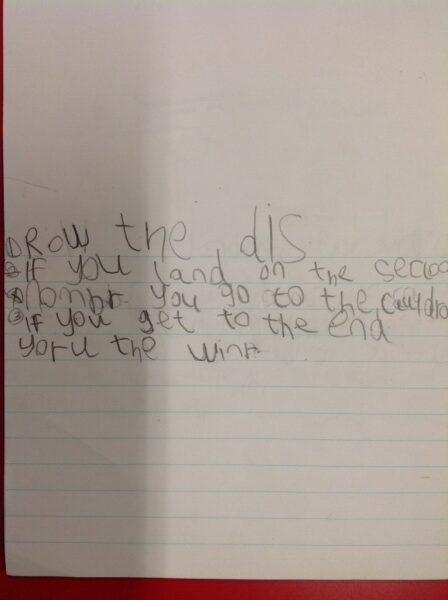 ① Row the dis
② If you land on the secod
nombr you go to the cauldro
③ If you get to the end
yoru the winr